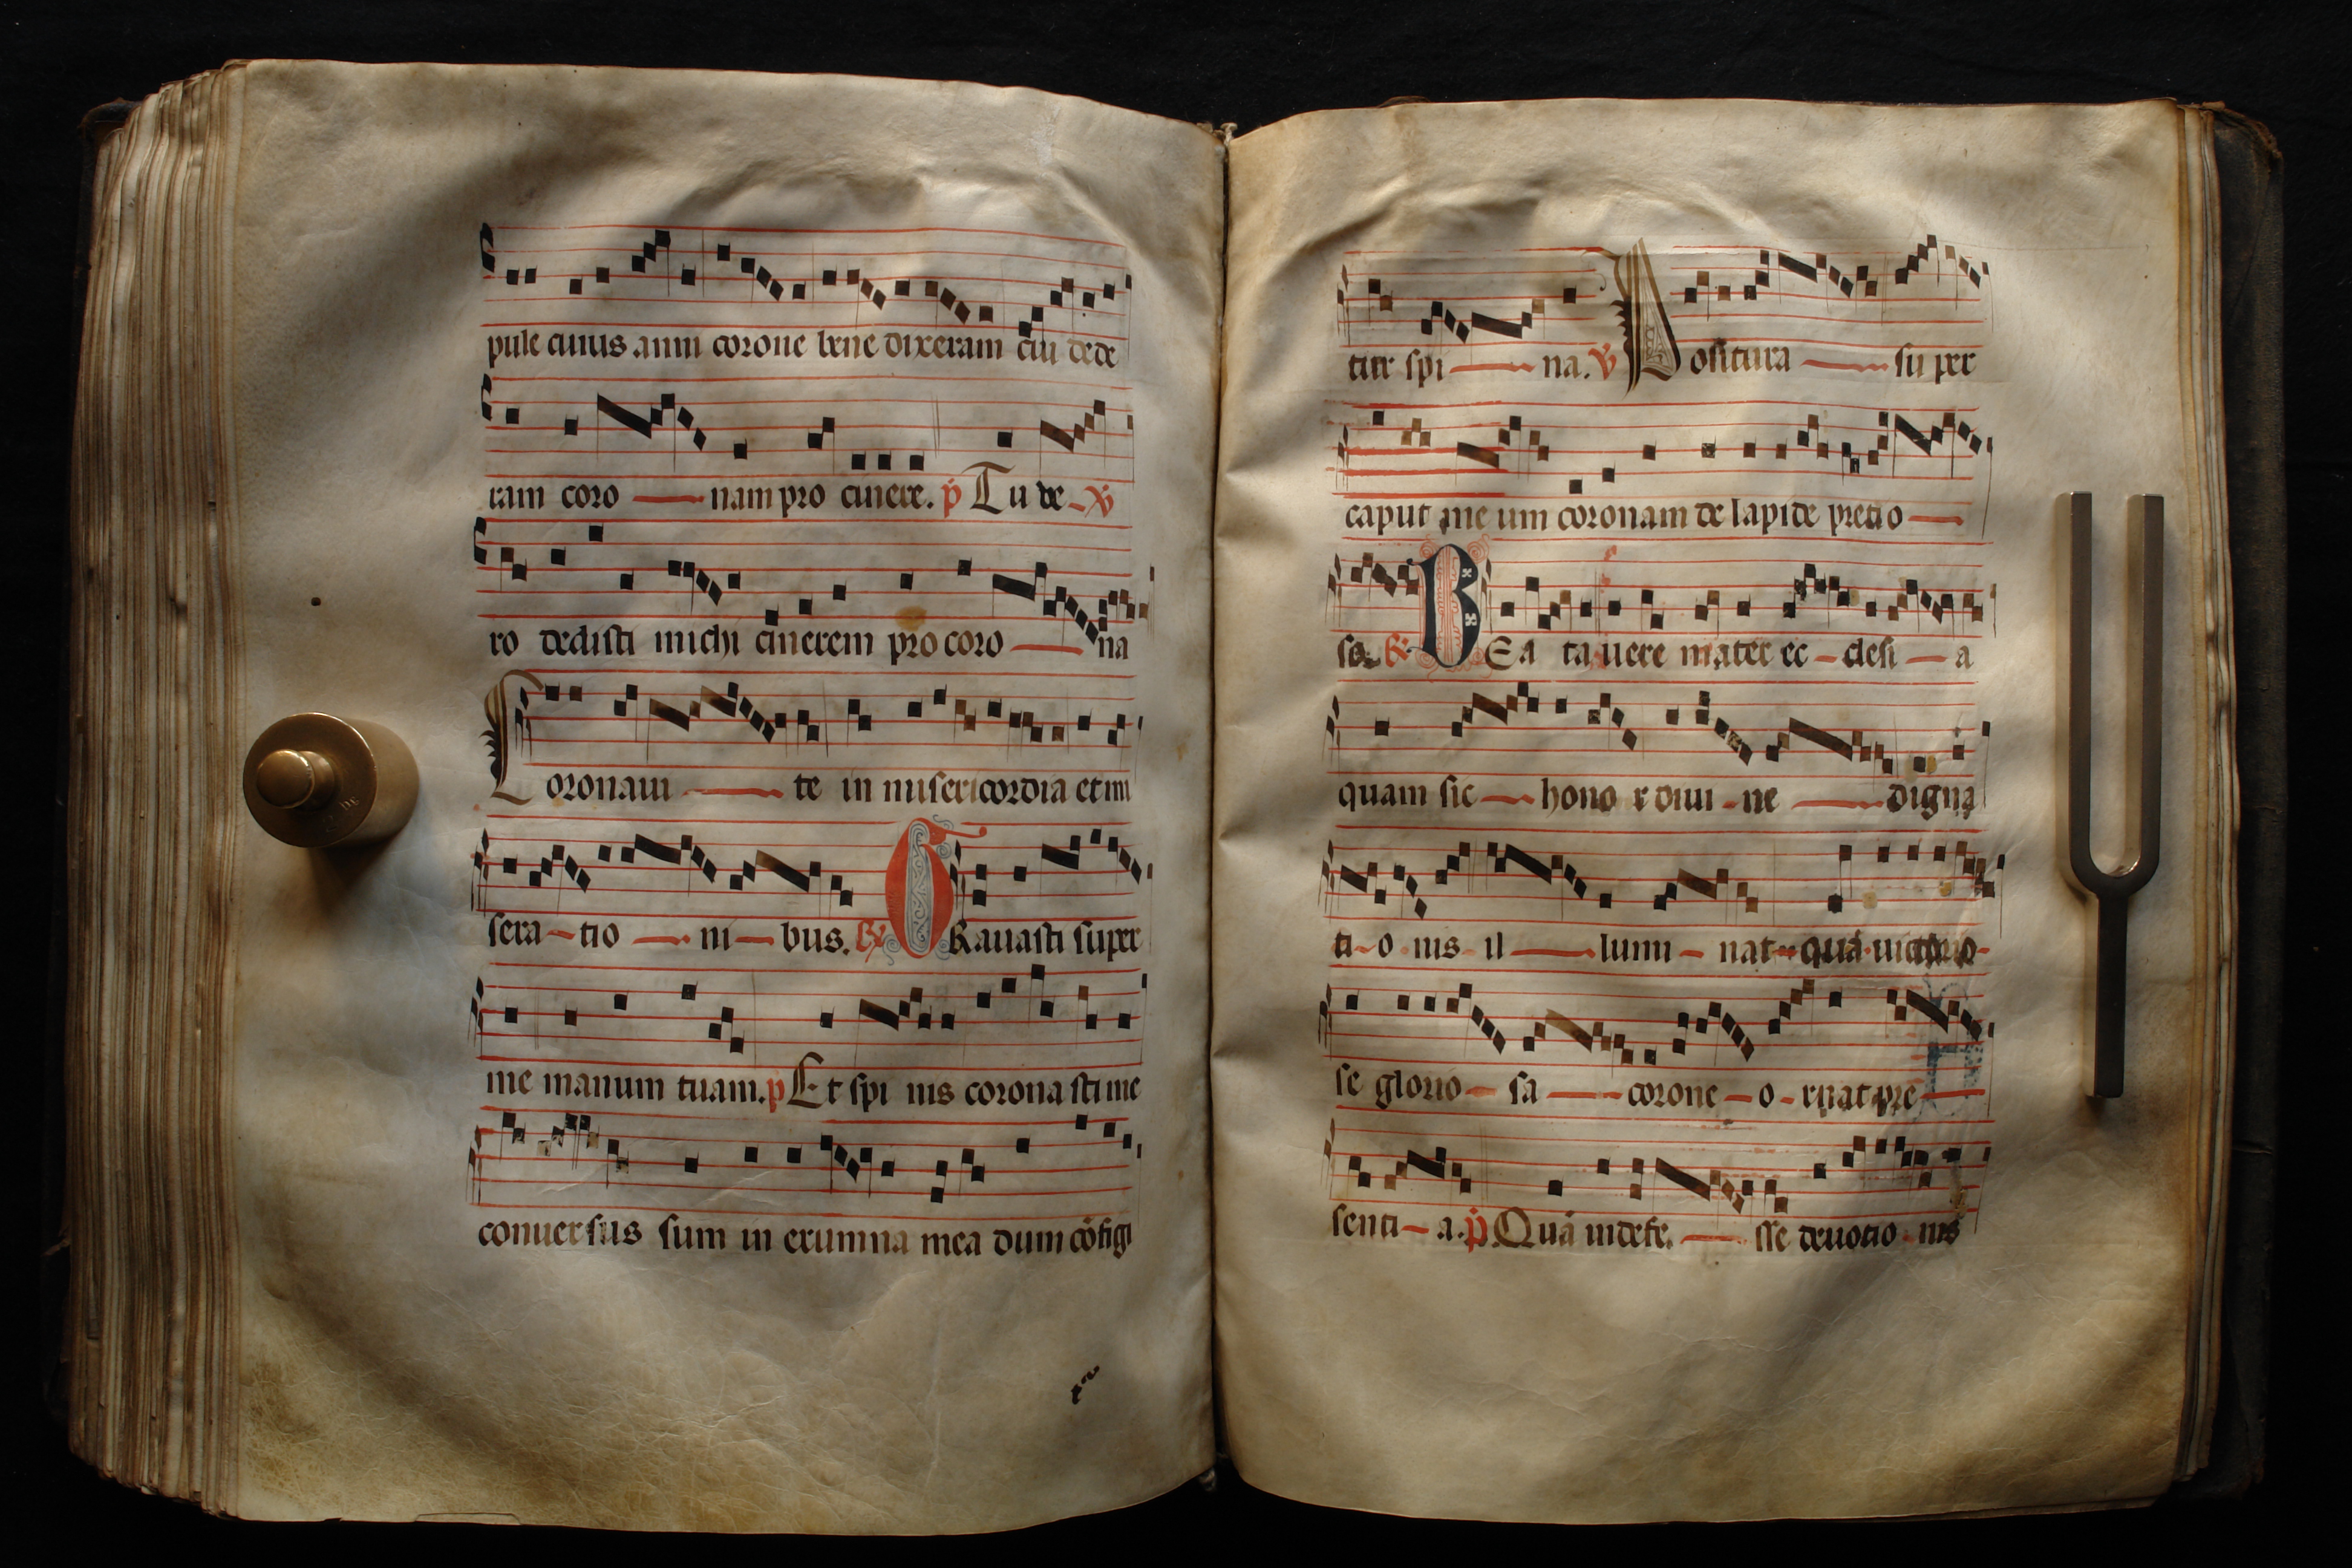 pule cuius anni corone bene dixeram cui dede
ram coro nam pro cinere. p Tu ve ℣
ro dedisti michi cinerem pro coro na
Coronam te in misericordia et mi
sera tio ni bus. ℟ GRauasti super
me manum tuam. p Et spi nis corona sti me
conuersus sum in erumna mea dum cōfigi
tur spi na. ℣ Positura su per
caput me um coronam de lapide pretio
so. ℟ BEa ta uere mater ec clesi a
quam sic hono r diui ne digna
ti o nis il lumi nat quā uictorio
se glorio sa corone o rnat pre
senti a. p Quā indefe sse deuotio nis